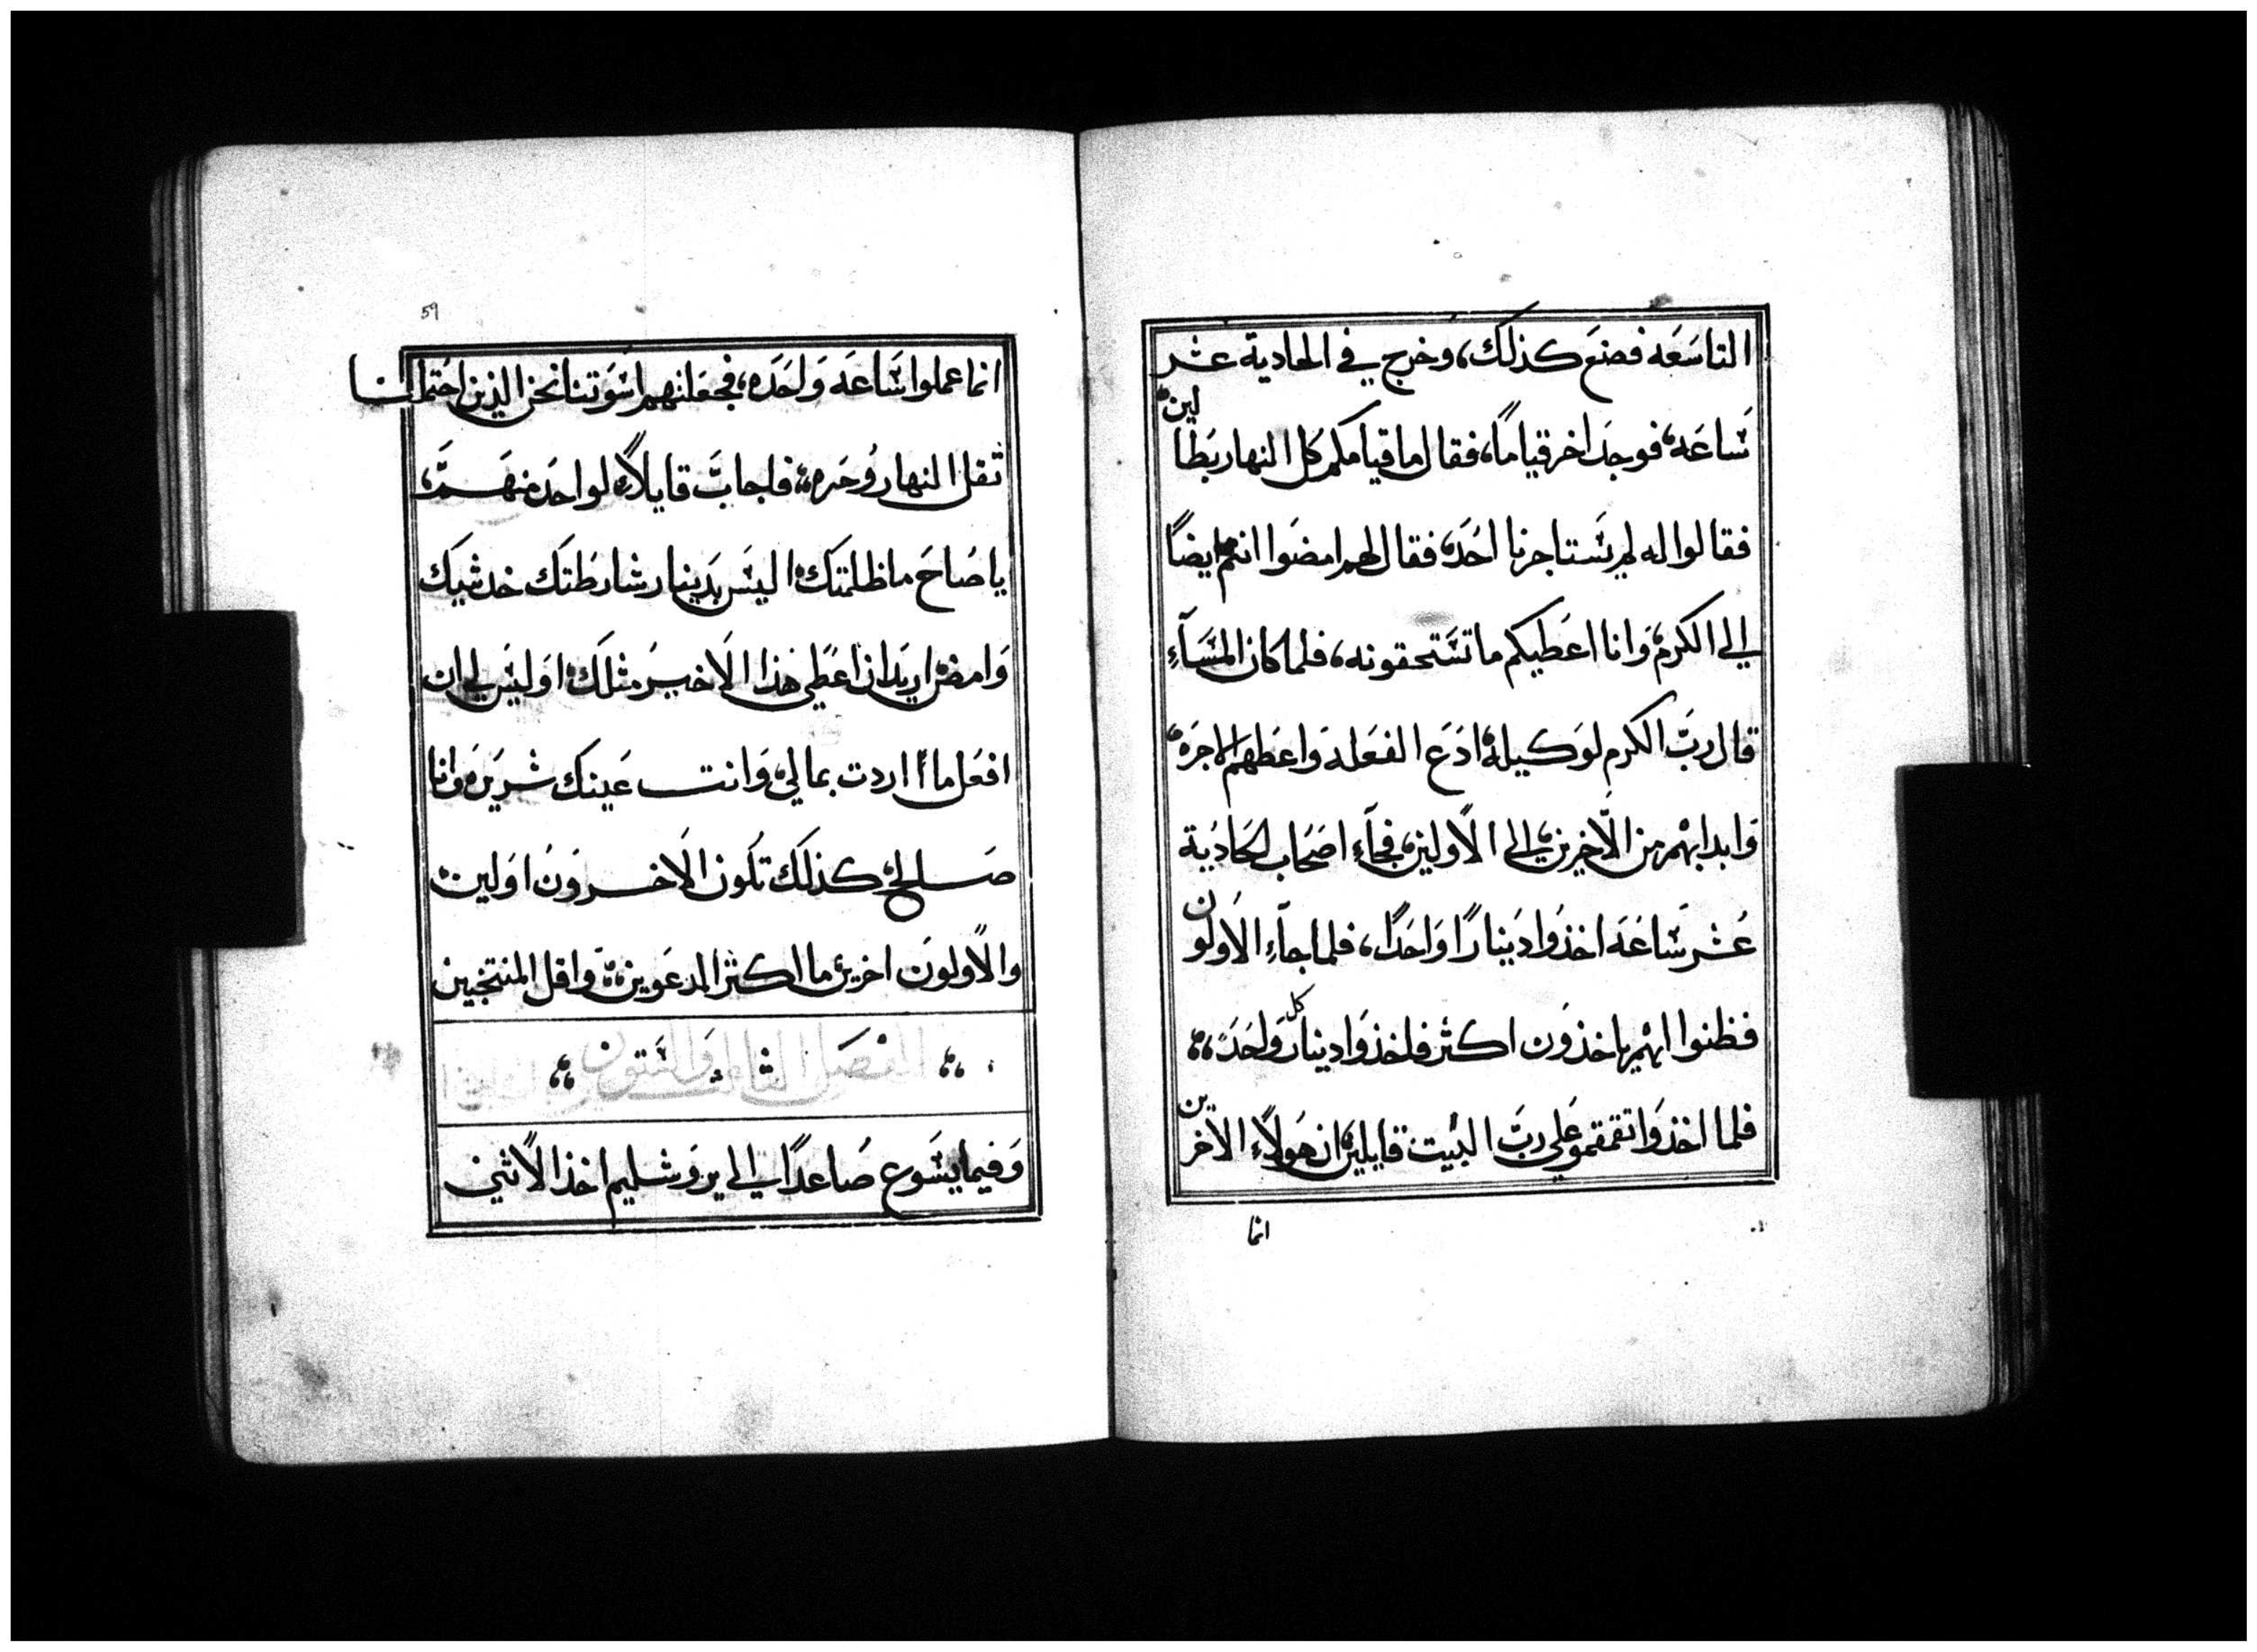 التاسعه فصنع كذلك، وخرج في الحادية عشر
ساعه، فوجد اخر قياماً، فقال ما قيامكم كل النهار بطالين
فقالوا له لم يستاجرنا احد، فقال لهم امضوا انتم ايضاً
الي الكرم، وانا اعطيكم ما تستحقونه، فلما كان المسآء
قال ربّ الكرم لوكيله، ادع الفعله واعطهم الاجره،
وابدا بهم من الاخرين، الى الاولين، فجآء اصحاب الحادية
عشر ساعه اخذوا ديناراً واحداً، فلما جآء الاولون
فظنوا انهم ياخذون اكثر فاخذوا دينار كل واحد،،
فلما اخذوا تقمقموا علي ربّ البيت قايلين، ان هولاء الاخرين
انما
59
انما عملوا ساعه واحده، فجعلتهم اسوتنا نحن الذين احتملنا
ثقل النهار وحره، فاجابّ قايلاً، لواحد منهم،
يا صاح ما ظلمتك، اليس بدينار شارطتك خد شيك
وامض، اريد ان اعطي هذا الاخير مثلك، اوليس لي ان
افعل ما اردت بمالي، وانت عينك شريره وانا
صالح، كذلك تكون الاخرون اولين،
والاولون اخرين، ما اكثر المدعوين، واقل المنتجبين
الفصل الثالث والستون
وفيما يسوع صاعداً الي يروشليم اخذ الاثني